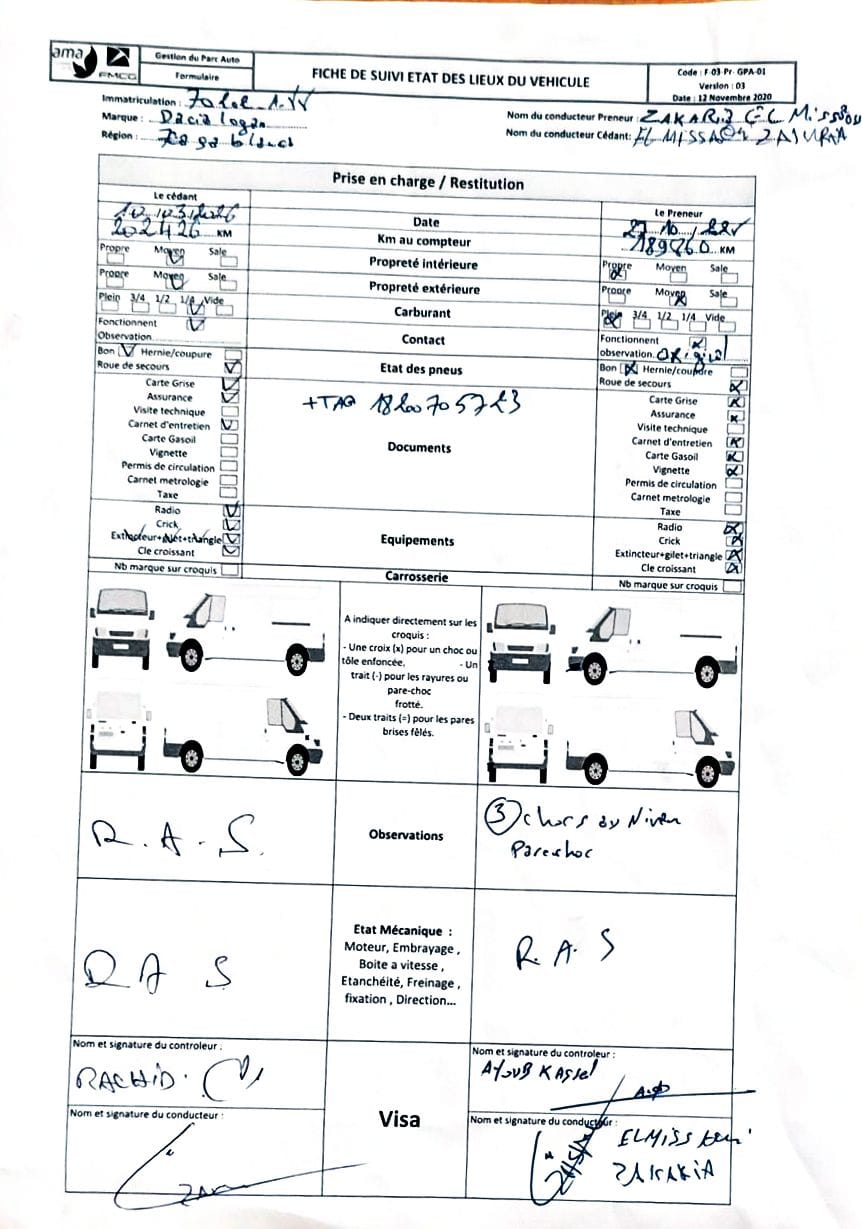 ama
FMCG
Gestion du Parc Auto
Formulaire
FICHE DE SUIVI ETAT DES LIEUX DU VEHICULE
Code : F-03-Pr- GPA-01
Version : 03
Date : 12 Novembre 2020
Immatriculation :
Marque : Dacia logan
Région : Casablanca
Nom du conducteur Preneur : ZAKARIA EL
Nom du conducteur Cédant: EL MISSAOUI ZAKARIA
Prise en charge / Restitution
Le cédant
Le Preneur
10/03/2026
Date
27/10/
202426 KM
Km au compteur
189760 KM
Propre Moyen Sale
Propreté intérieure
Propre Moyen Sale
Propre Moyen Sale
Propreté extérieure
Propre Moyen Sale
Plein 3/4 1/2 1/4 Vide
Carburant
Plein 3/4 1/2 1/4 Vide
Fonctionnent
Observation
Contact
Fonctionnent
observation. original
Bon Hernie/coupure
Roue de secours
Etat des pneus
Bon Hernie/coupure
Roue de secours
Carte Grise
Assurance
Visite technique
Carnet d'entretien
Carte Gasoil
Vignette
Permis de circulation
Carnet metrologie
Taxe
+TAG 18200705723
Documents
Carte Grise
Assurance
Visite technique
Carnet d'entretien
Carte Gasoil
Vignette
Permis de circulation
Carnet metrologie
Taxe
Radio
Crick
Extincteur+gilet+triangle
Cle croissant
Equipements
Radio
Crick
Extincteur+gilet+triangle
Cle croissant
Nb marque sur croquis
Carrosserie
Nb marque sur croquis
A indiquer directement sur les
croquis :
- Une croix (x) pour un choc ou
tôle enfoncée. - Un
trait (-) pour les rayures ou
pare-choc
frotté.
- Deux traits (=) pour les pares
brises fêlés.
R.A.S.
Observations
3 chocs au Niveau
Parechoc
RAS
Etat Mécanique :
Moteur, Embrayage ,
Boite a vitesse ,
Etanchéité, Freinage ,
fixation , Direction...
R.A.S
Nom et signature du controleur :
RACHID.
Nom et signature du conducteur :
Visa
Nom et signature du controleur :
AYOUB KASSEL
Nom et signature du conducteur :
ZAKARIA